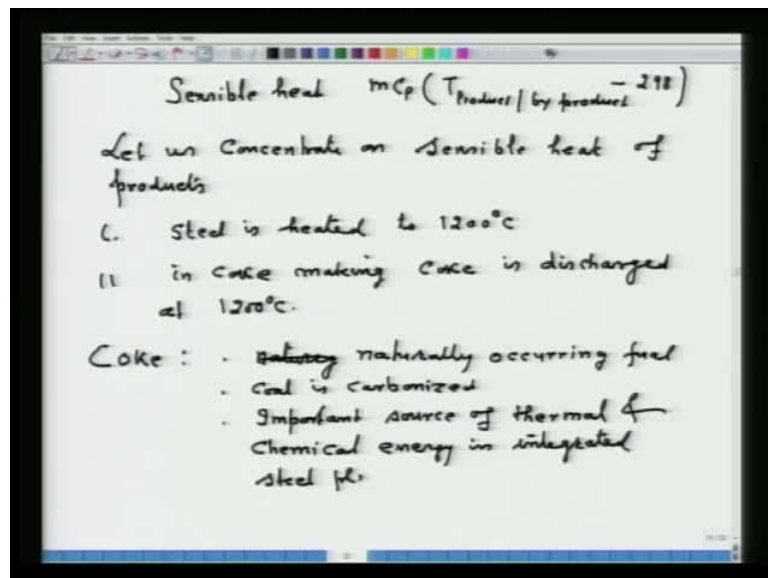 Sensible heat mCp (T Product / by product - 298)
Let us Concentrate on Sensible heat of
products
i. Steel is heated to 1200°C
ii in coke making Coke is discharged
at 1200°C.
Coke : . naturally occurring fuel
. Coal is carbonized
. Important source of thermal &
Chemical energy in integrated
steel pl